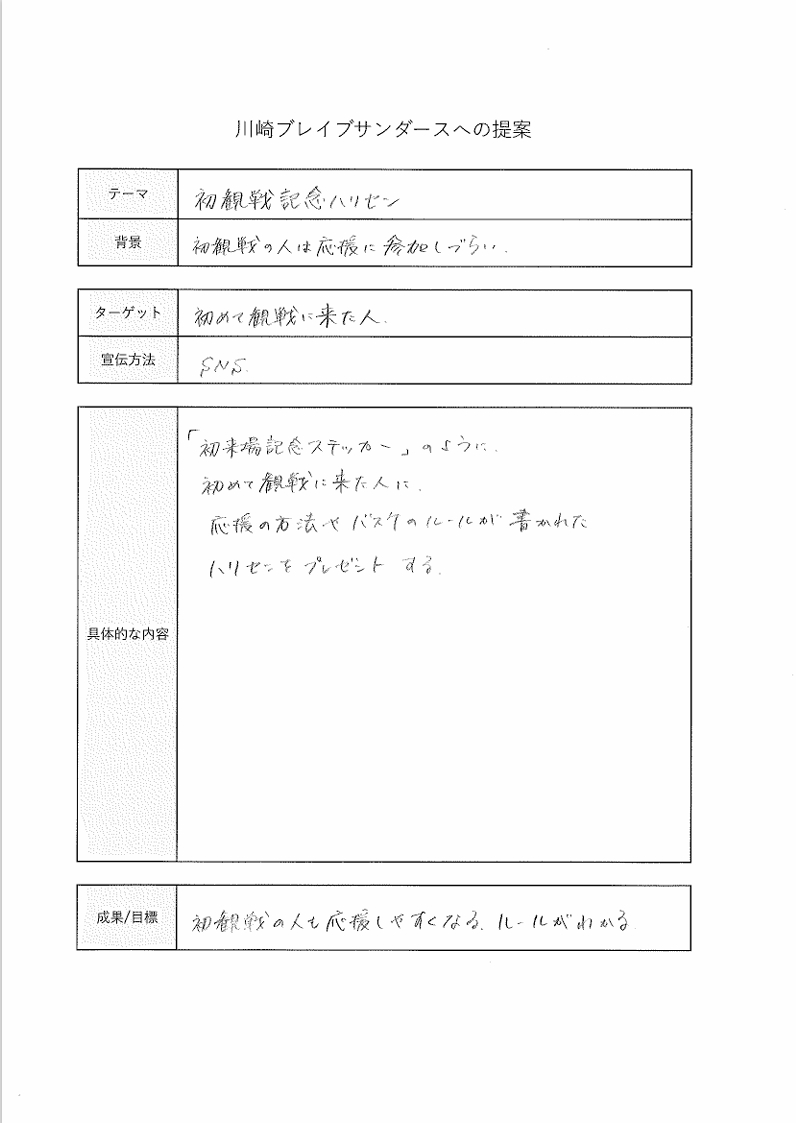 川崎ブレイブサンダースへの提案
テーマ
初観戦記念ハリセン
背景
初観戦の人は応援に参加しづらい.
ターゲット
初めて観戦に来た人.
宣伝方法
SNS.
「初来場記念ステッカー」のように.
初めて観戦に来た人に.
応援の方法や バスケのルールが 書かれた
ハリセンを プレゼント する.
具体的な内容
成果/目標
初観戦の人も応援しやすくなる. ルールがわかる.